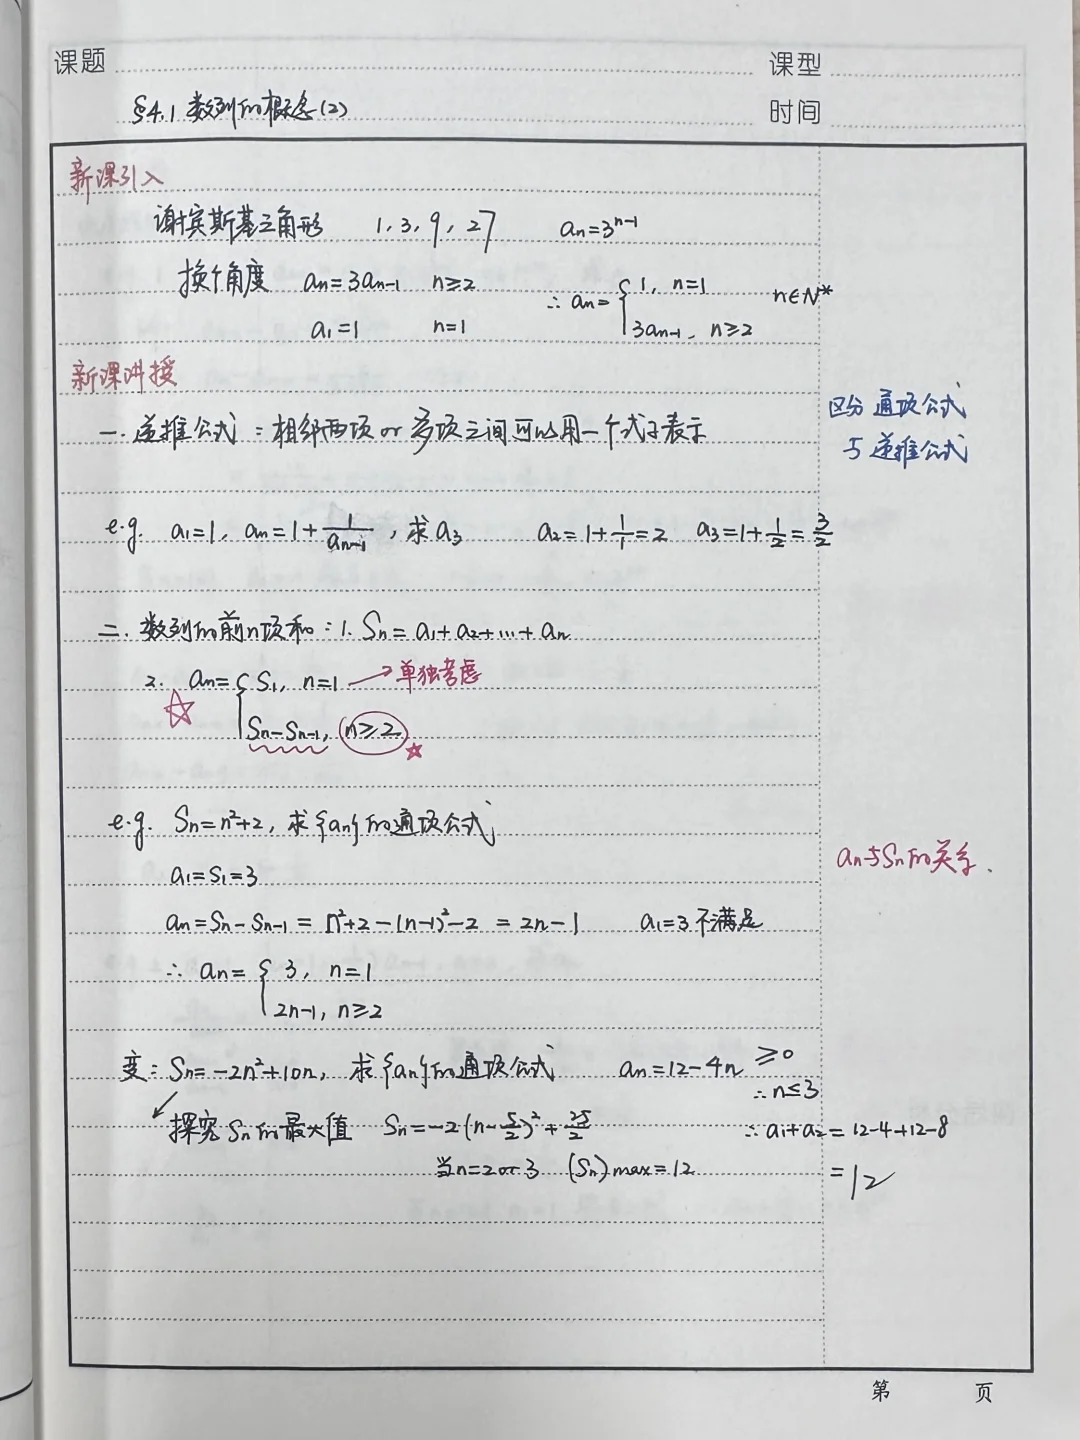 课题 课型
§4.1 数列的概念(2) 时间
新课引入
谢宾斯基三角形 1,3,9,27 aₙ=3ⁿ⁻¹
换个角度 aₙ=3aₙ₋₁ n≥2 ∴ aₙ={1, n=1 n∈N*
a₁=1 n=1 3aₙ₋₁, n≥2
新课讲授
一. 递推公式：相邻两项or多项之间可以用一个式子表示
区分 通项公式
与 递推公式
e.g. a₁=1, aₙ=1+1/aₙ₋₁, 求a₃ a₂=1+1/1=2 a₃=1+1/2=3/2
二. 数列的前n项和：1. Sₙ=a₁+a₂+…+aₙ
2. aₙ={S₁, n=1 →单独考虑
☆ Sₙ-Sₙ₋₁, n≥2 ☆
e.g. Sₙ=n²+2, 求{aₙ}的通项公式
aₙ与Sₙ的关系.
a₁=S₁=3
aₙ=Sₙ-Sₙ₋₁=n²+2-(n-1)²-2=2n-1 a₁=3 不满足
∴ aₙ={3, n=1
2n-1, n≥2
变：Sₙ=-2n²+10n, 求{aₙ}的通项公式 aₙ=12-4n ≥0
∴n≤3
探究Sₙ的最大值 Sₙ=-2(n-5/2)²+25/2 ∴a₁+a₂=12-4+12-8
当n=2 or 3 (Sₙ)max=12 =12
第 页